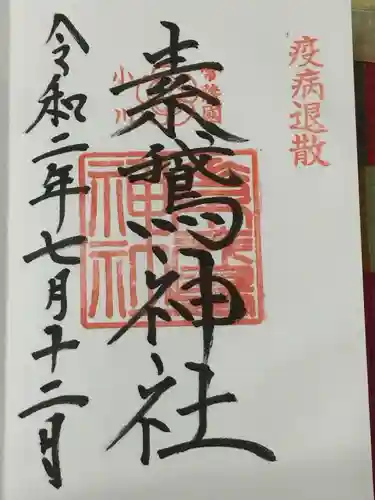 疫病退散
常陸國
小川
素鵞神社
令和二年七月十二日